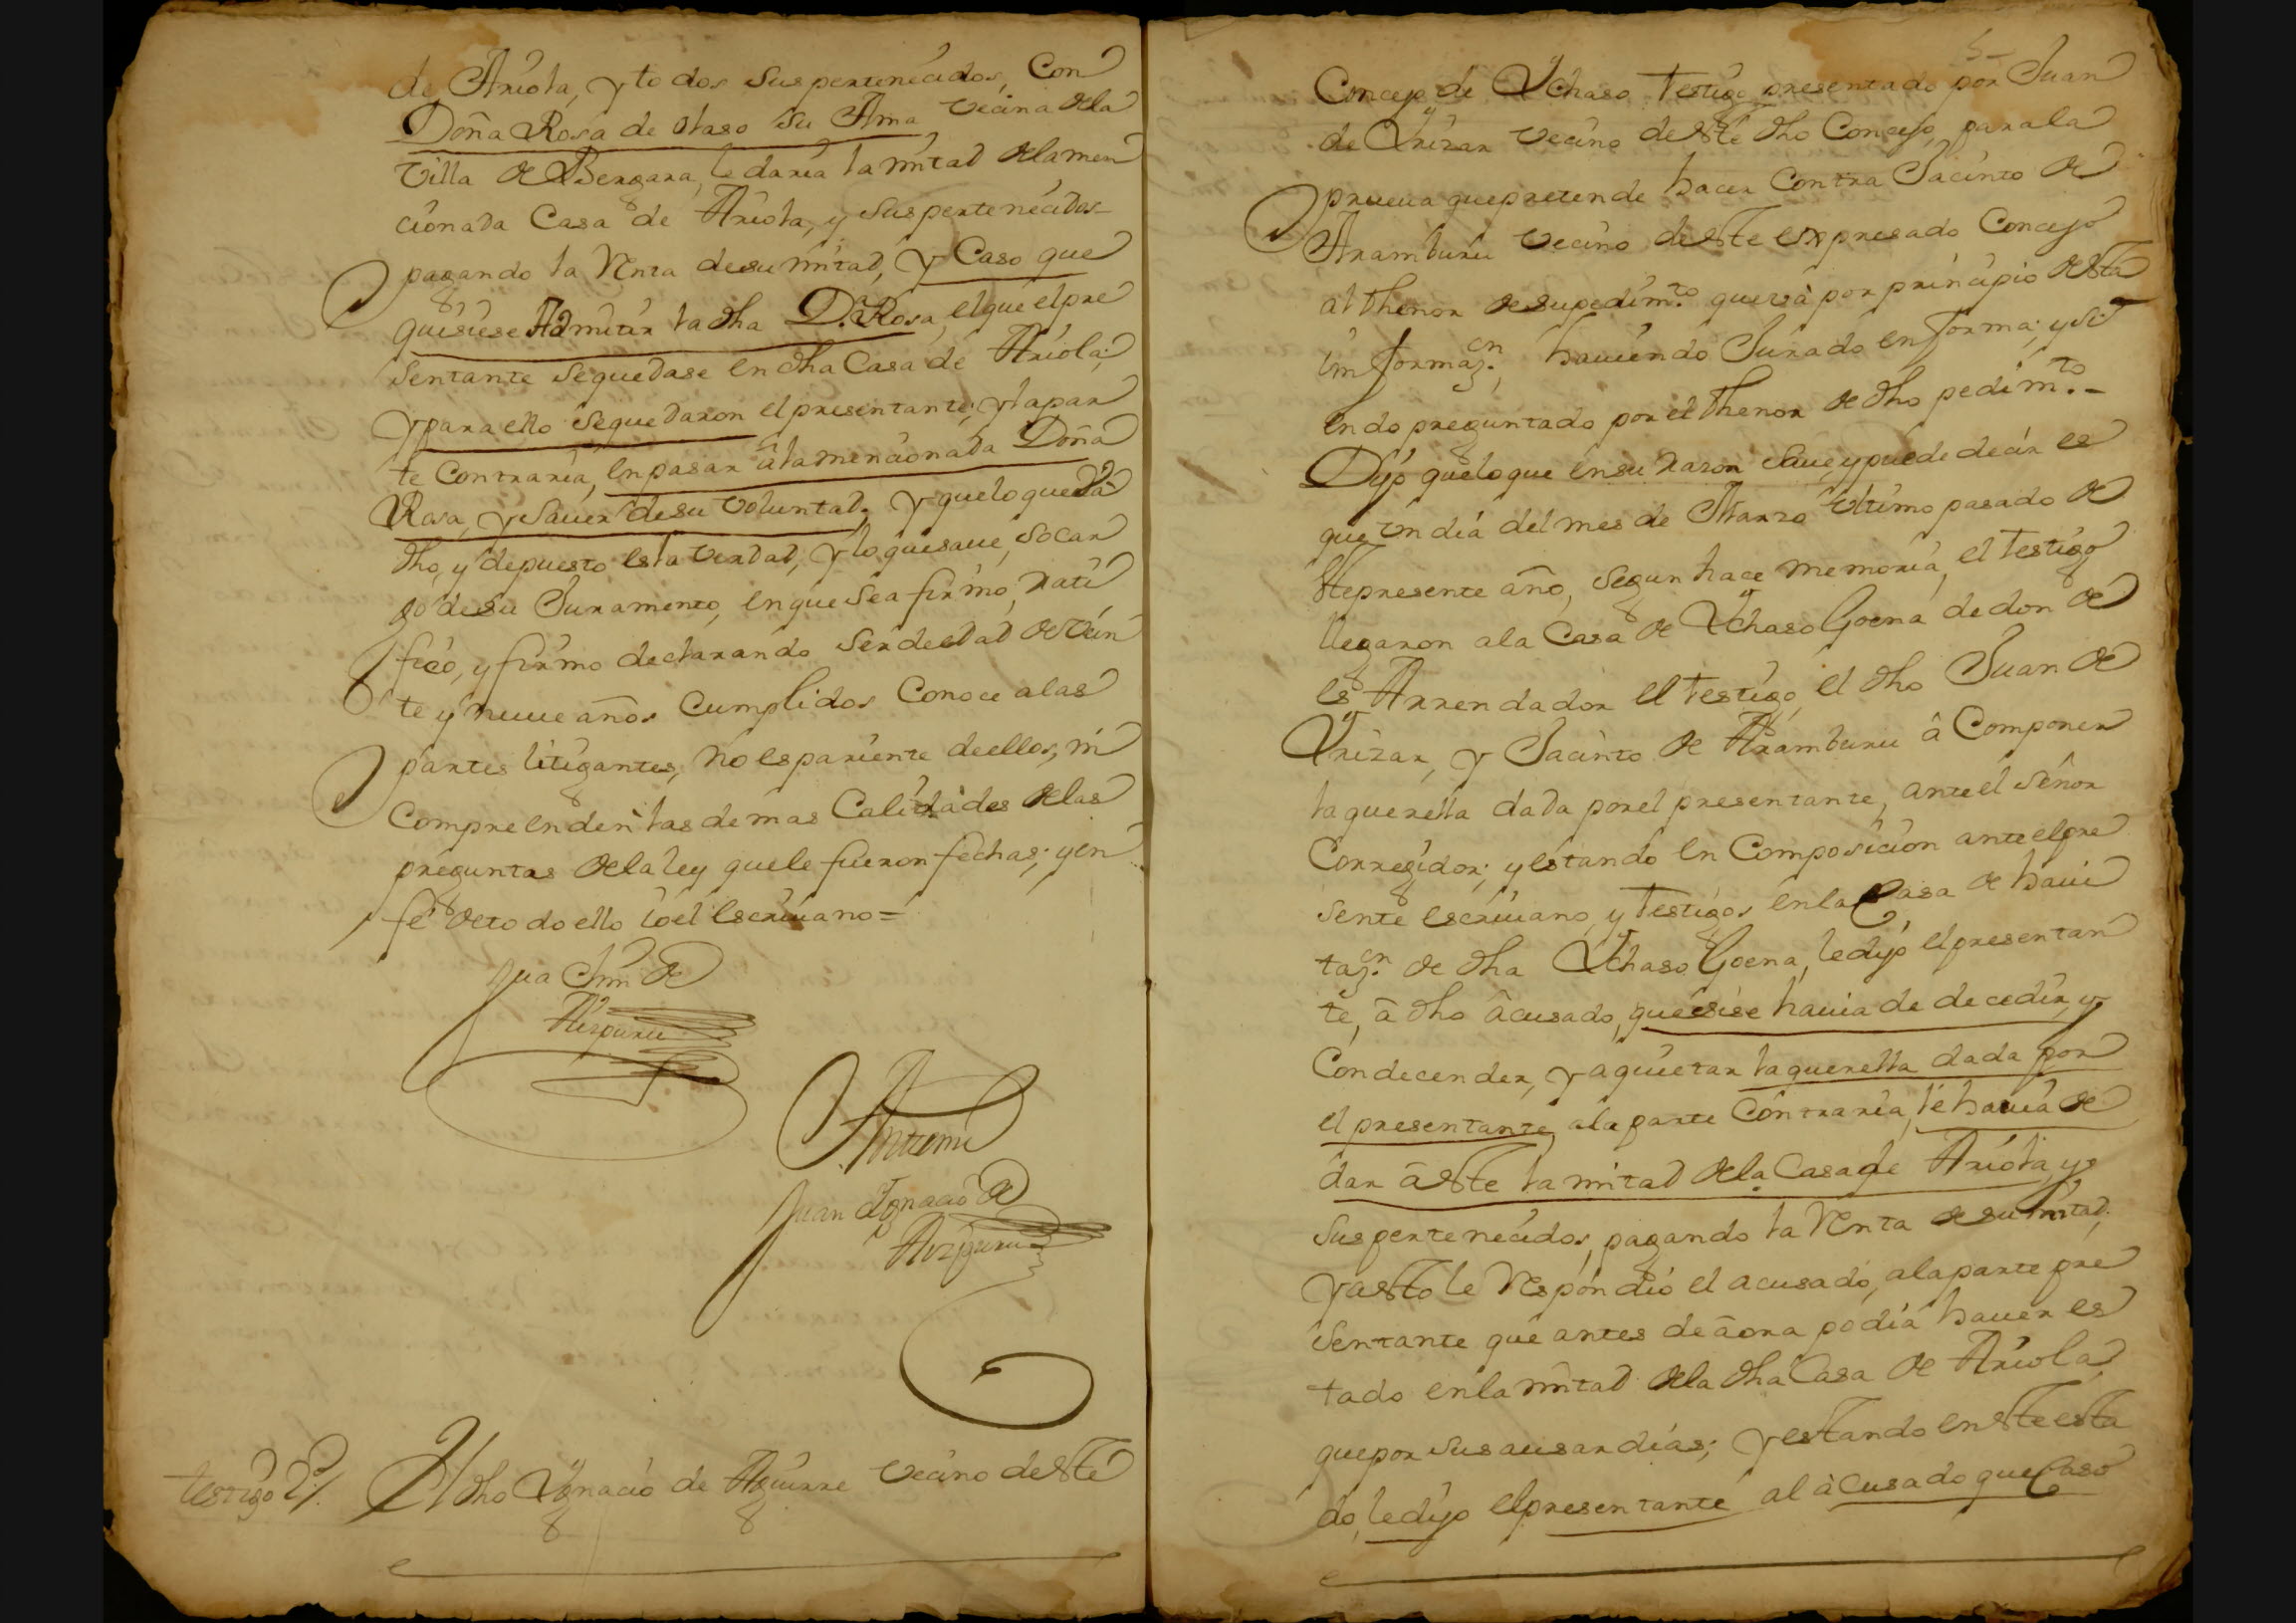 de Ariola, y todos sus pertenecidos, Con
Doña Rosa de olaso su Ama vecina dela
villa de Bergara, le daria la mitad dela men
cionada Casa de Ariola, y sus pertenecidos
pagando la Renta de su mitad, y Caso que
quisiese Admitir la dha D.ª Rosa, el que el pre
sentante se quedase en dha Casa de Ariola;
y para ello se quedaron el presentante, y la par
te Contraria, en pasar â la mencionada Doña
Rosa, y Saver de su voluntad, y que lo que ba
dho, y depuesto es la verdad, y lo que save, so car
go de su Juramento, en que se afirmo, rati
fico, y firmo declarando ser de edad de vein
te y nueve años Cumplidos Conoce a las
partes litigantes, no es pariente de ellos, ni
Compreenden las demas Calidades delas
preguntas dela ley que le fueron fechas; y en
fe de todo ello Yo el Escrivano =
Juachin de
Aizpuru
Antemi
Juan Ignacio de
Aizpuru
testigo 2º. El dho Ygnacio de Aguirre vecino deste
Concejo de Ychaso testigo presentado por Juan
de Yrizar vecino deste dho Concejo, para la
prueva que pretende hacer Contra Jacinto de
Aramburu vecino deste expresado Concejo
al thenor de su pedim.to que và por principio desta
informaz.on, haviendo Jurado en forma; y si
endo preguntado por el thenor de dho pedim.to
Dijo que lo que en su razon save, y puede decir es
que un dia del mes de Marzo ultimo pasado de
ste presente año, segun hace memoria, el testigo
llegaron a la Casa de Ychaso Goena de don de
es Arrendador el testigo, el dho Juan de
Yrizar, y Jacinto de Aramburu â Componer
la querella dada por el presentante, ante el Señor
Corregidor; y estando en Composicion ante el pre
sente escrivano, y testigos en la Casa de havi
taz.on de dha Ychaso Goena, le dijo el presentan
te, â dho âcusado, que si se havia de de cedir, y
Condecender, y aquietar la querella dada por
el presentante, a la parte Contraria, le havia de
dar âeste la mitad dela Casa de Ariola, y
sus pertenecidos, pagando la Renta de su mitad;
y a esto le Respondio el acusado, a la parte pre
sentante que antes de âora podia haver es
tado en la mitad dela dha Casa de Ariola,
que por sus ausardias; y estando en este esta
do, le dijo el presentante al àcusado que Caso